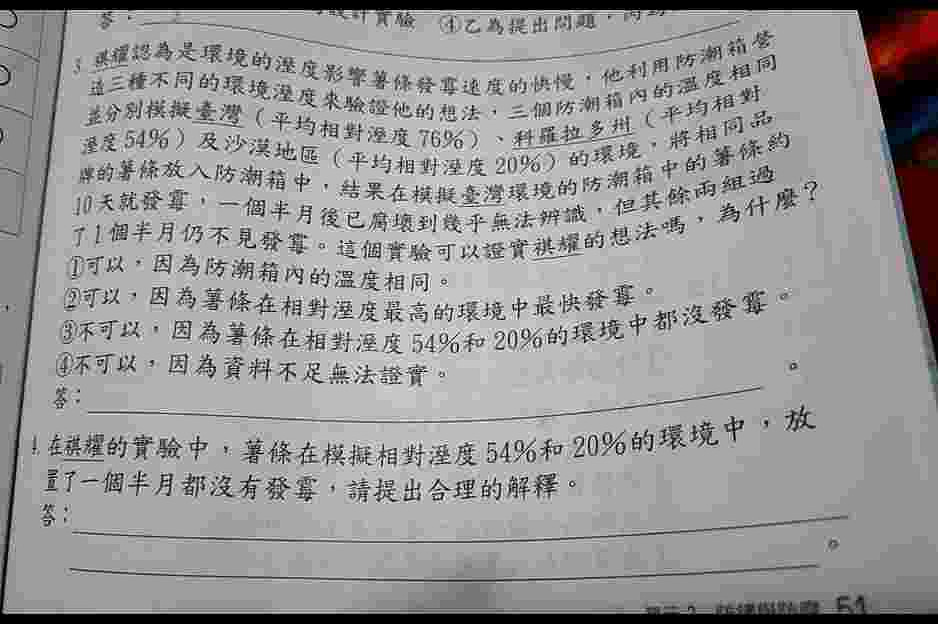 答：
設計實驗 ④乙為提出問題，
3. 祺耀認為是環境的溼度影響薯條發霉速度的快慢，他利用防潮箱營
造三種不同的環境溼度來驗證他的想法，三個防潮箱內的溫度相同
並分別模擬臺灣（平均相對溼度76%）、科羅拉多州（平均相對
溼度54%）及沙漠地區（平均相對溼度20%）的環境，將相同品
牌的薯條放入防潮箱中，結果在模擬臺灣環境的防潮箱中的薯條約
10天就發霉，一個半月後已腐壞到幾乎無法辨識，但其餘兩組過
了1個半月仍不見發霉。這個實驗可以證實祺耀的想法嗎，為什麼？
①可以，因為防潮箱內的溫度相同。
②可以，因為薯條在相對溼度最高的環境中最快發霉。
③不可以，因為薯條在相對溼度54%和20%的環境中都沒發霉。
④不可以，因為資料不足無法證實。
答：。
4. 在祺耀的實驗中，薯條在模擬相對溼度54%和20%的環境中，放
置了一個半月都沒有發霉，請提出合理的解釋。
答：
。
51